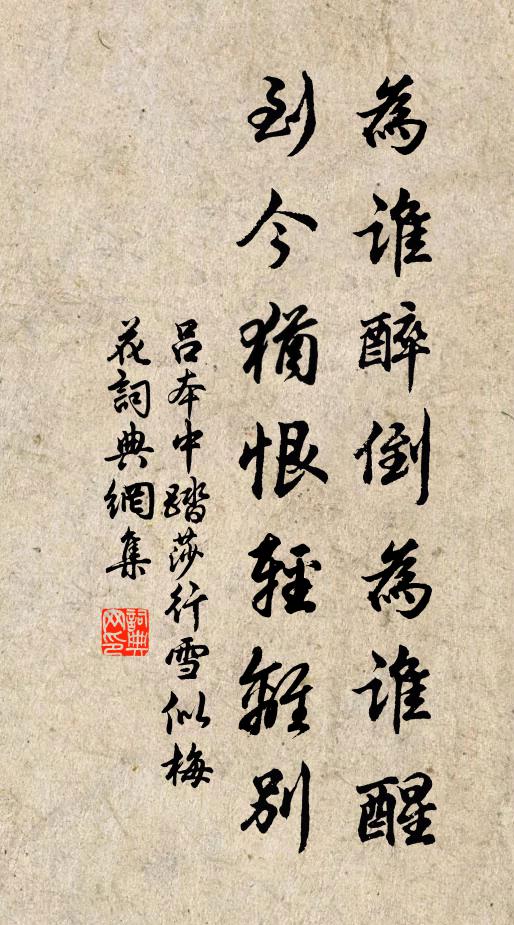 為誰醉倒為誰醒
到今猶恨輕離別
呂本中踏莎行雪似梅
花詞典網集
詞典
网印